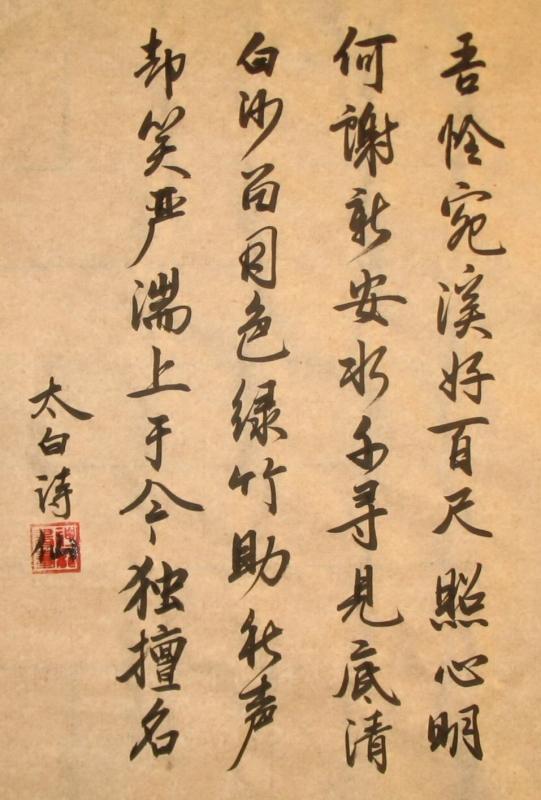 吾怜宛溪好百尺照心明
何謝新安水千寻見底清
白沙留月色绿竹助秋声
却笑严湍上于今独擅名
太白诗